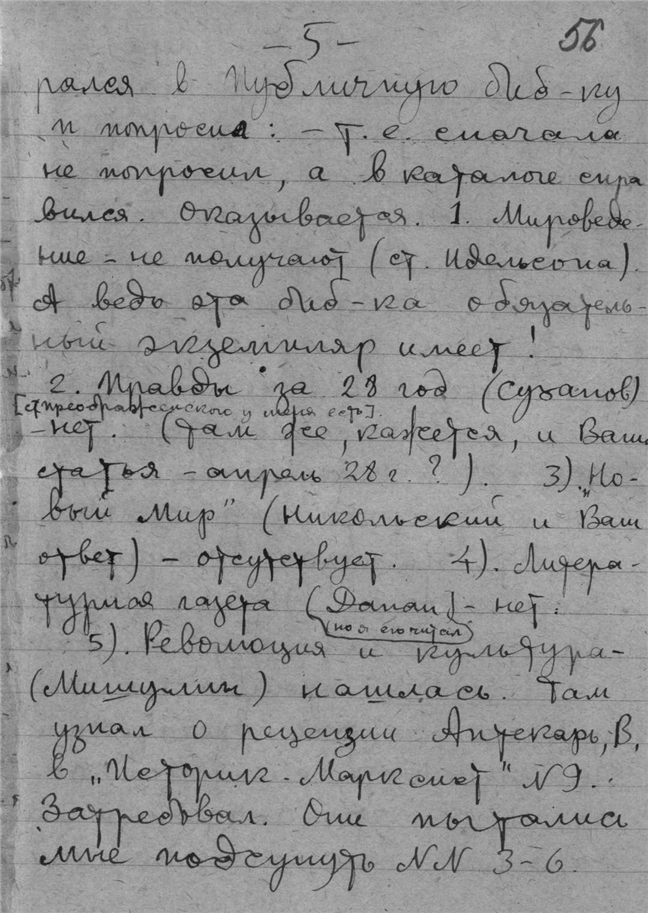 – 5 –
56
рался в Публичную биб-ку
и попросил: – т.е. сначала
не попросил, а в каталоге спра
вился. Оказывается. 1. Мироведе-
ние – не получают (ст. Идельсона).
А ведь эта биб-ка обязатель-
ный экземпляр имеет!
2. Правды за 28 год (Суханов)
[ст Преображенского у меня есть].
– нет. (там же, кажется, и Ваша
статья – апрель 28 г. ?). 3). „Но-
вый Мир" (Никольский и Ваш
ответ) – отсутствует. 4). Литера-
турная газета (Danan) – нет.
(но я его читал)
5). Революция и культура –
(Мишулин) нашлась. Там
узнал о рецензии Аптекарь, В,
в „Историк-Марксист" N 9.
Затребовал. Они пытались
мне подсунуть NN 3-6.